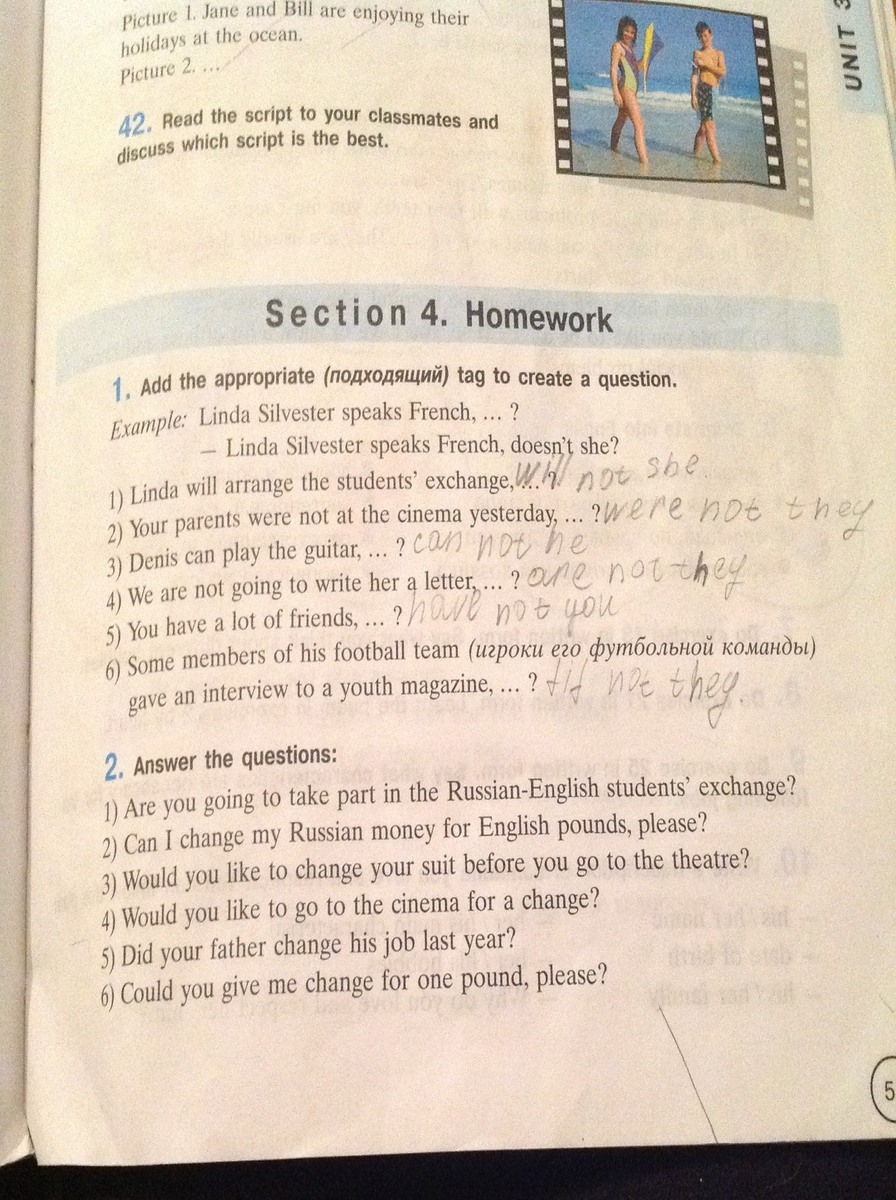 Picture 1. Jane and Bill are enjoying their
holidays at the ocean.
Picture 2. ...
UNIT 3
42. Read the script to your classmates and
discuss which script is the best.
Section 4. Homework
1. Add the appropriate (подходящий) tag to create a question.
Example: Linda Silvester speaks French, ... ?
— Linda Silvester speaks French, doesn't she?
1) Linda will arrange the students' exchange, ... ? will not she.
2) Your parents were not at the cinema yesterday, ... ? were not they
3) Denis can play the guitar, ... ? can not he
4) We are not going to write her a letter, ... ? are not they
5) You have a lot of friends, ... ? have not you
6) Some members of his football team (игроки его футбольной команды)
gave an interview to a youth magazine, ... ? not they.
2. Answer the questions:
1) Are you going to take part in the Russian-English students' exchange?
2) Can I change my Russian money for English pounds, please?
3) Would you like to change your suit before you go to the theatre?
4) Would you like to go to the cinema for a change?
5) Did your father change his job last year?
6) Could you give me change for one pound, please?
5